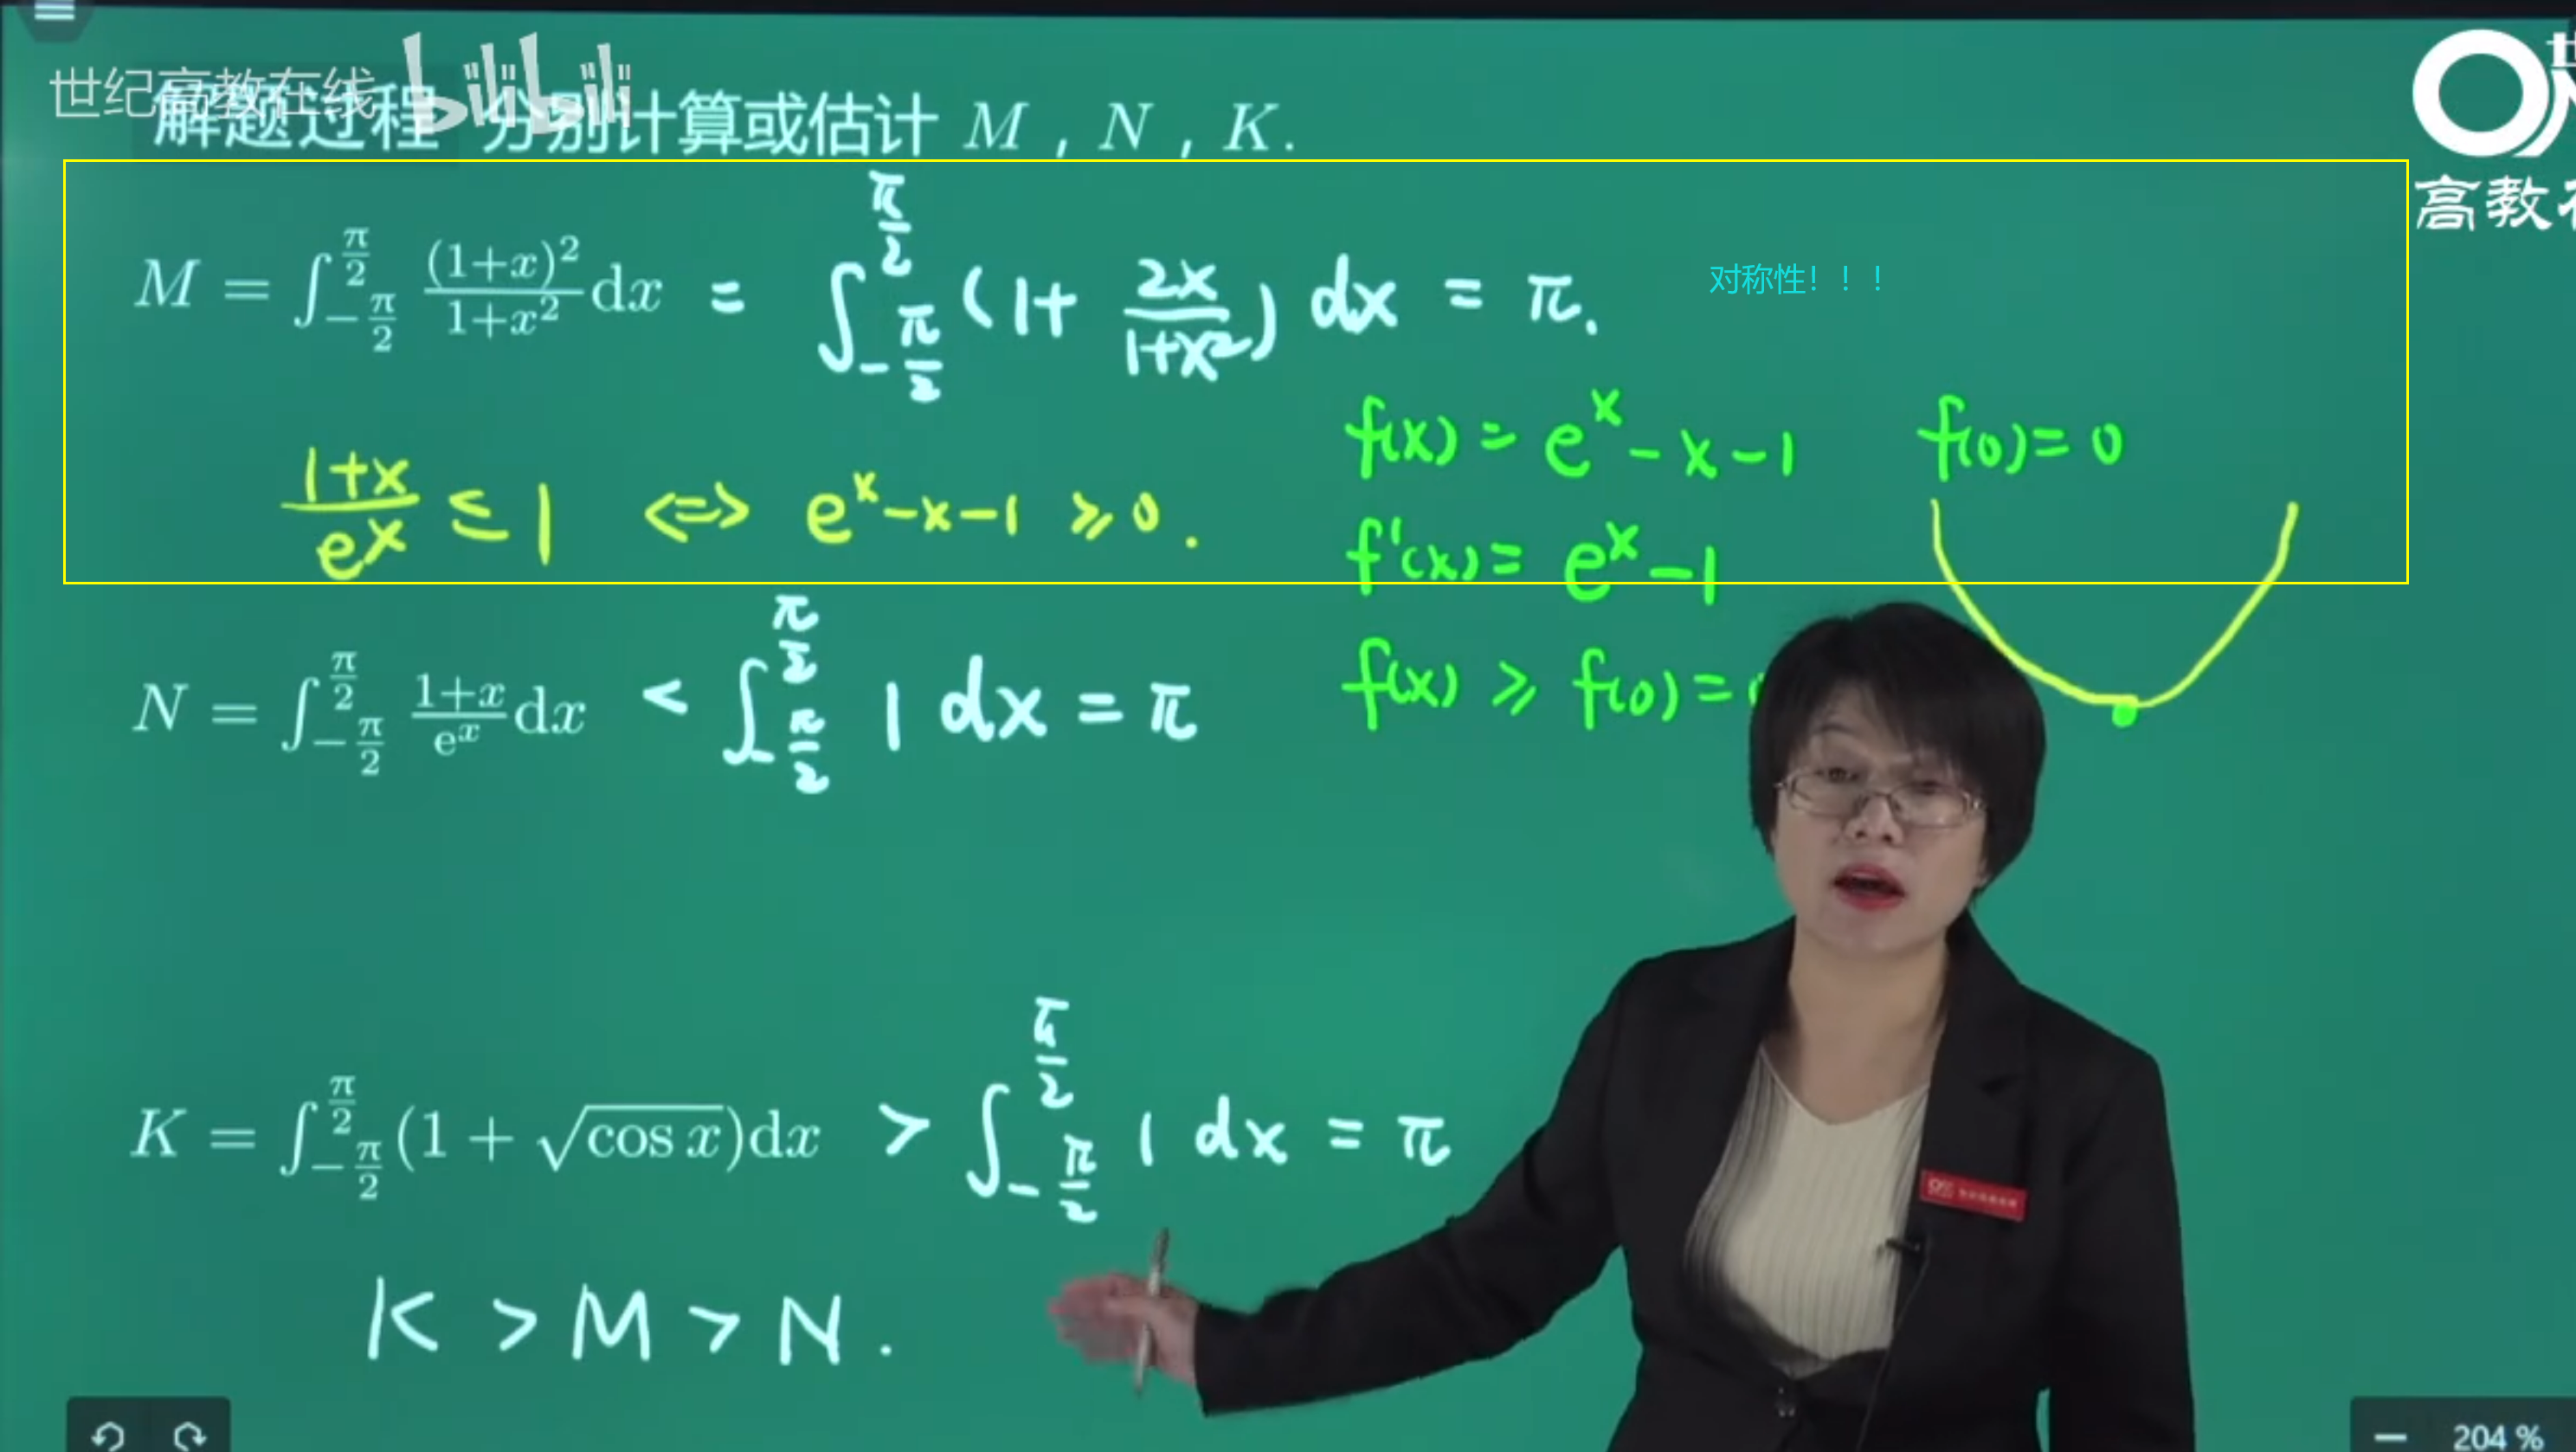 世纪高教在线 bilibili
解题过程 分别计算或估计 M , N , K.
高教
M = ∫_{-π/2}^{π/2} (1+x)²/(1+x²) dx = ∫_{-π/2}^{π/2} (1+ 2x/(1+x²)) dx = π.
对称性！！！
(1+x)/e^x ≤ 1 <=> e^x-x-1 ≥ 0.
f(x) = e^x-x-1 f(0)=0
f'(x) = e^x-1
f(x) ≥ f(0) =
N = ∫_{-π/2}^{π/2} (1+x)/e^x dx < ∫_{-π/2}^{π/2} 1 dx = π
K = ∫_{-π/2}^{π/2} (1 + √cos x)dx > ∫_{-π/2}^{π/2} 1 dx = π
K > M > N.
204 %